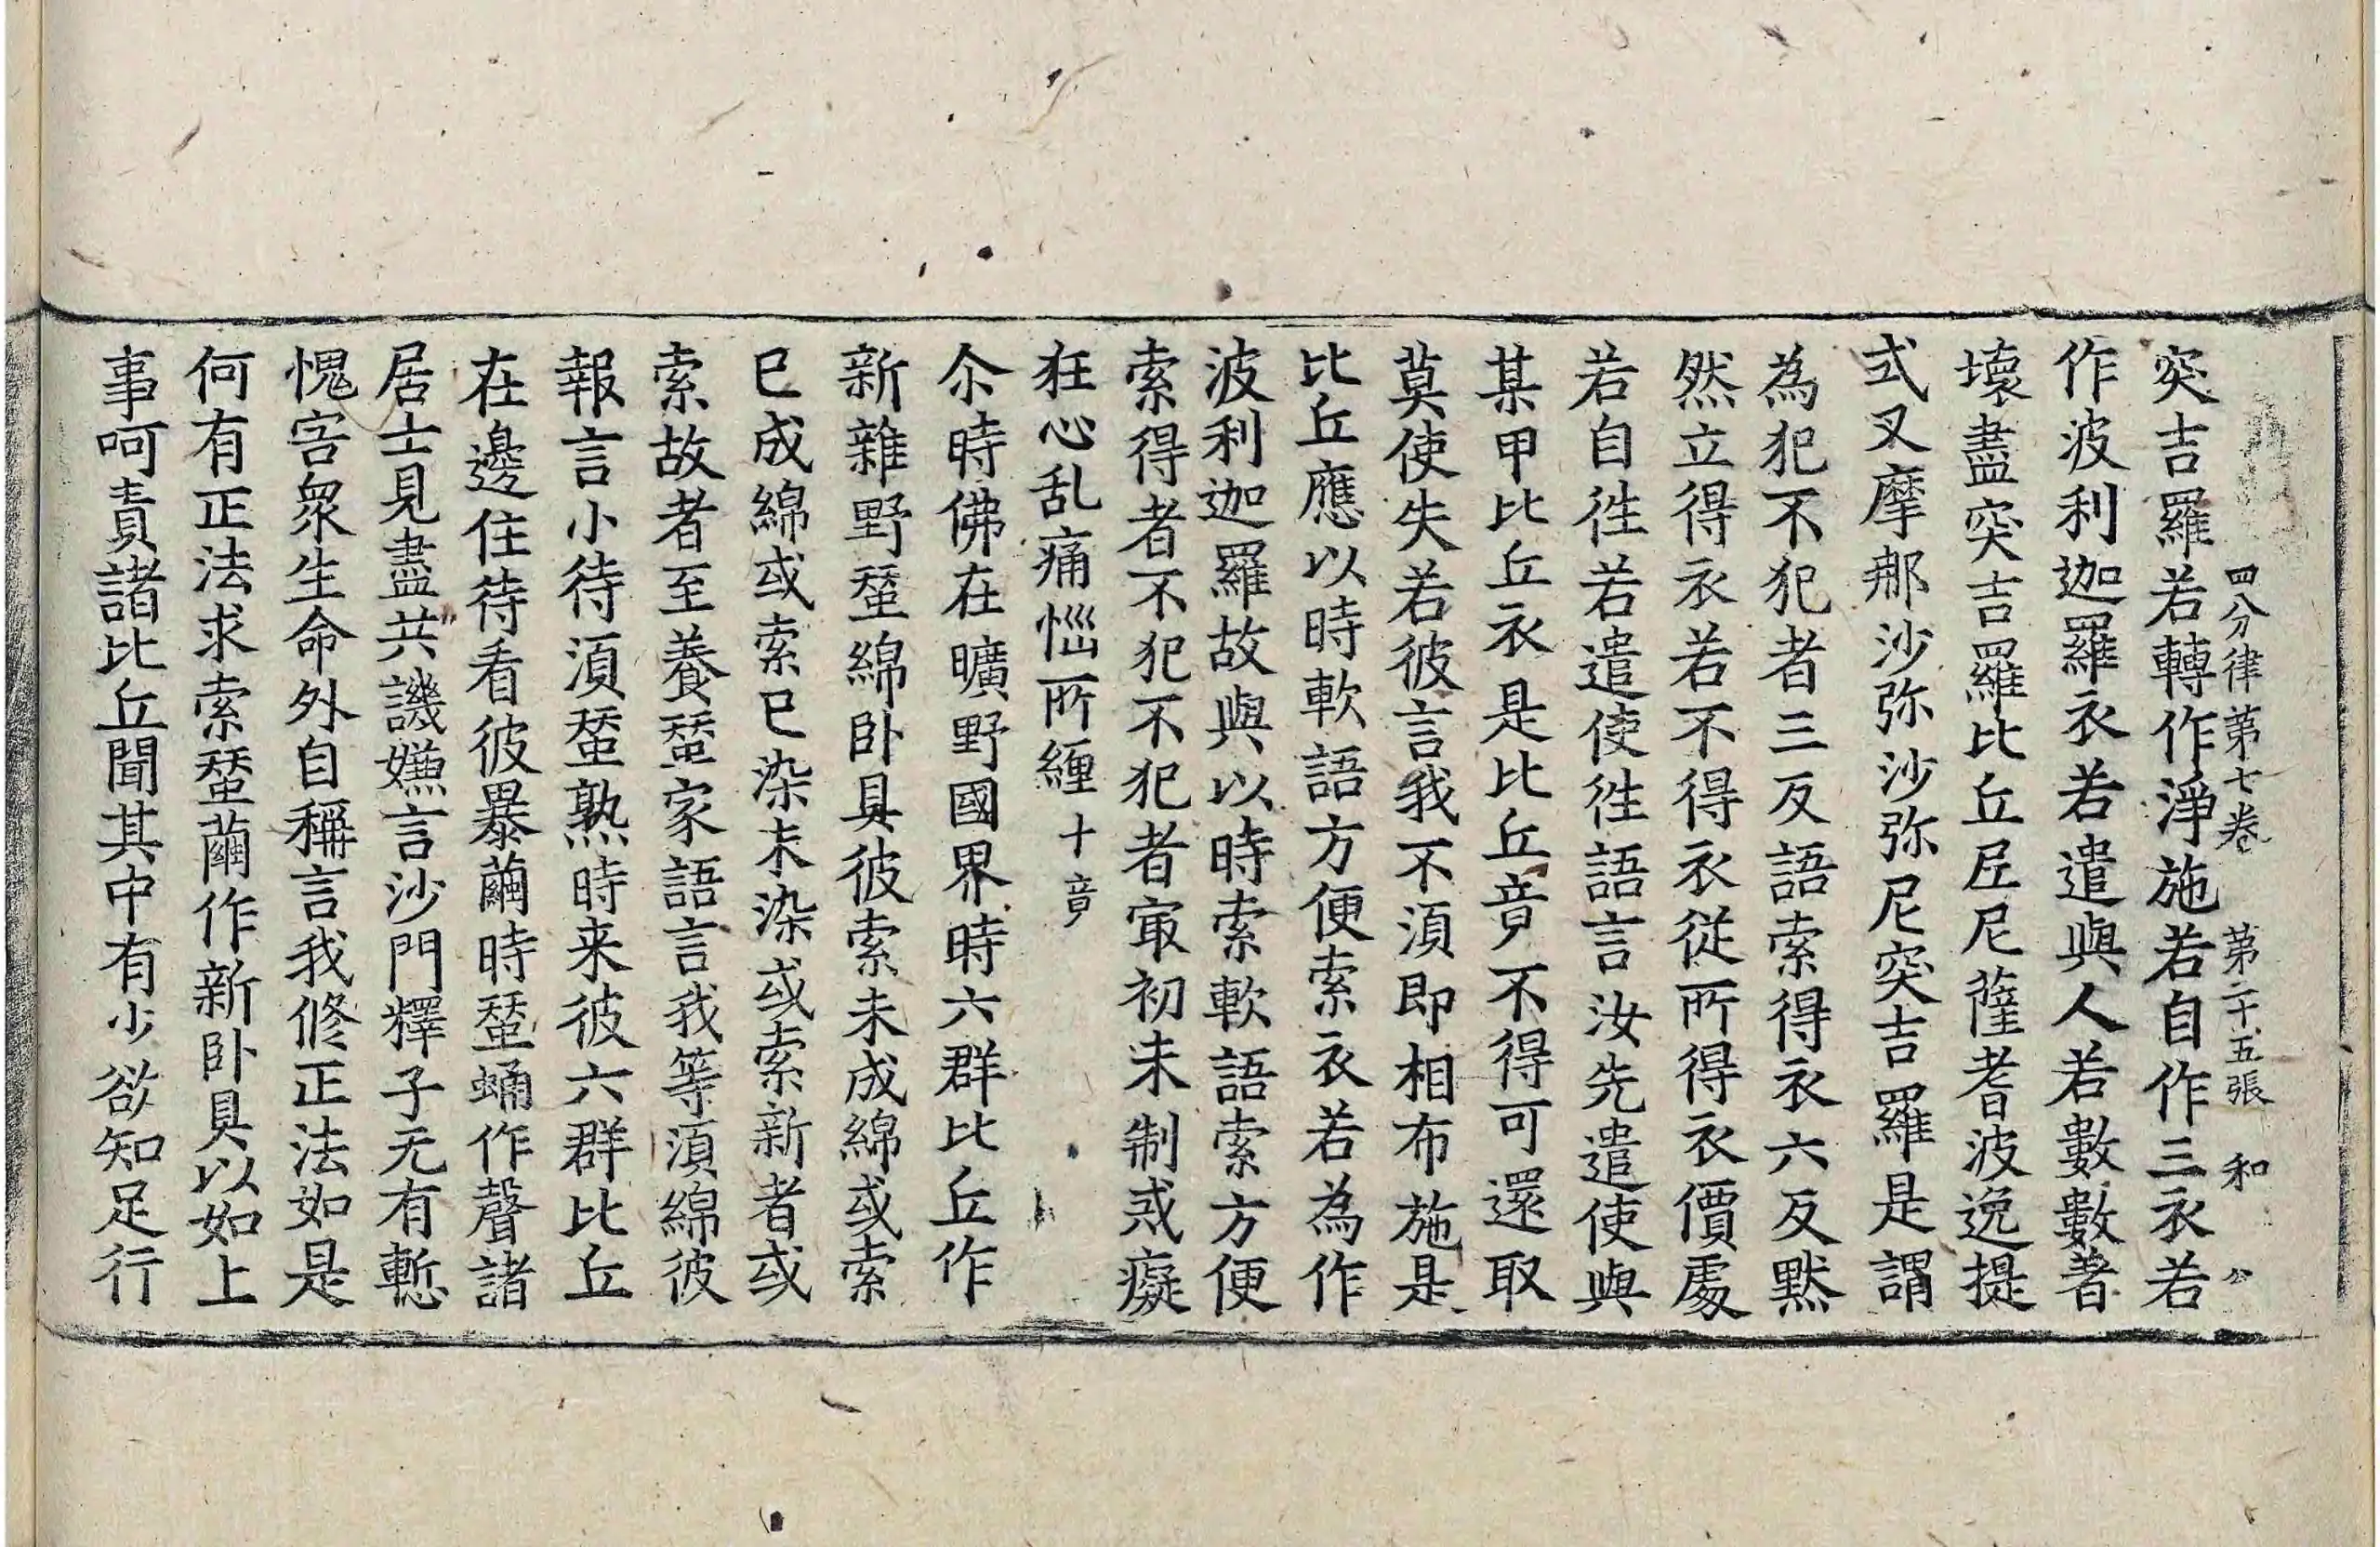 四分律第七卷 第二十五張 和 公
突吉羅若轉作淨施若自作三衣若
作波利迦羅衣若遣與人若數數著
壞盡突吉羅比丘尼尼薩耆波逸提
式叉摩那沙弥沙弥尼突吉羅是謂
為犯不犯者三反語索得衣六反黙
然立得衣若不得衣從所得衣價處
若自徃若遣使徃語言汝先遣使與
某甲比丘衣是比丘竟不得可還取
莫使失若彼言我不湏即相布施是
比丘應以時軟語方便索衣若為作
波利迦羅故與以時索軟語索方便
索得者不犯不犯者冣初未制戒癡
狂心乱痛惱所纏十竟
尒時佛在曠野國界時六群比丘作
新雜野蚕綿卧具彼索未成綿或索
已成綿或索已染未染或索新者或
索故者至養蚕家語言我等湏綿彼
報言小待湏蚕熟時来彼六群比丘
在邊住待看彼暴繭時蚕蛹作聲諸
居士見盡共譏嫌言沙門釋子无有慙
愧害衆生命外自稱言我修正法如是
何有正法求索蚕繭作新卧具以如上
事呵責諸比丘聞其中有少欲知足行